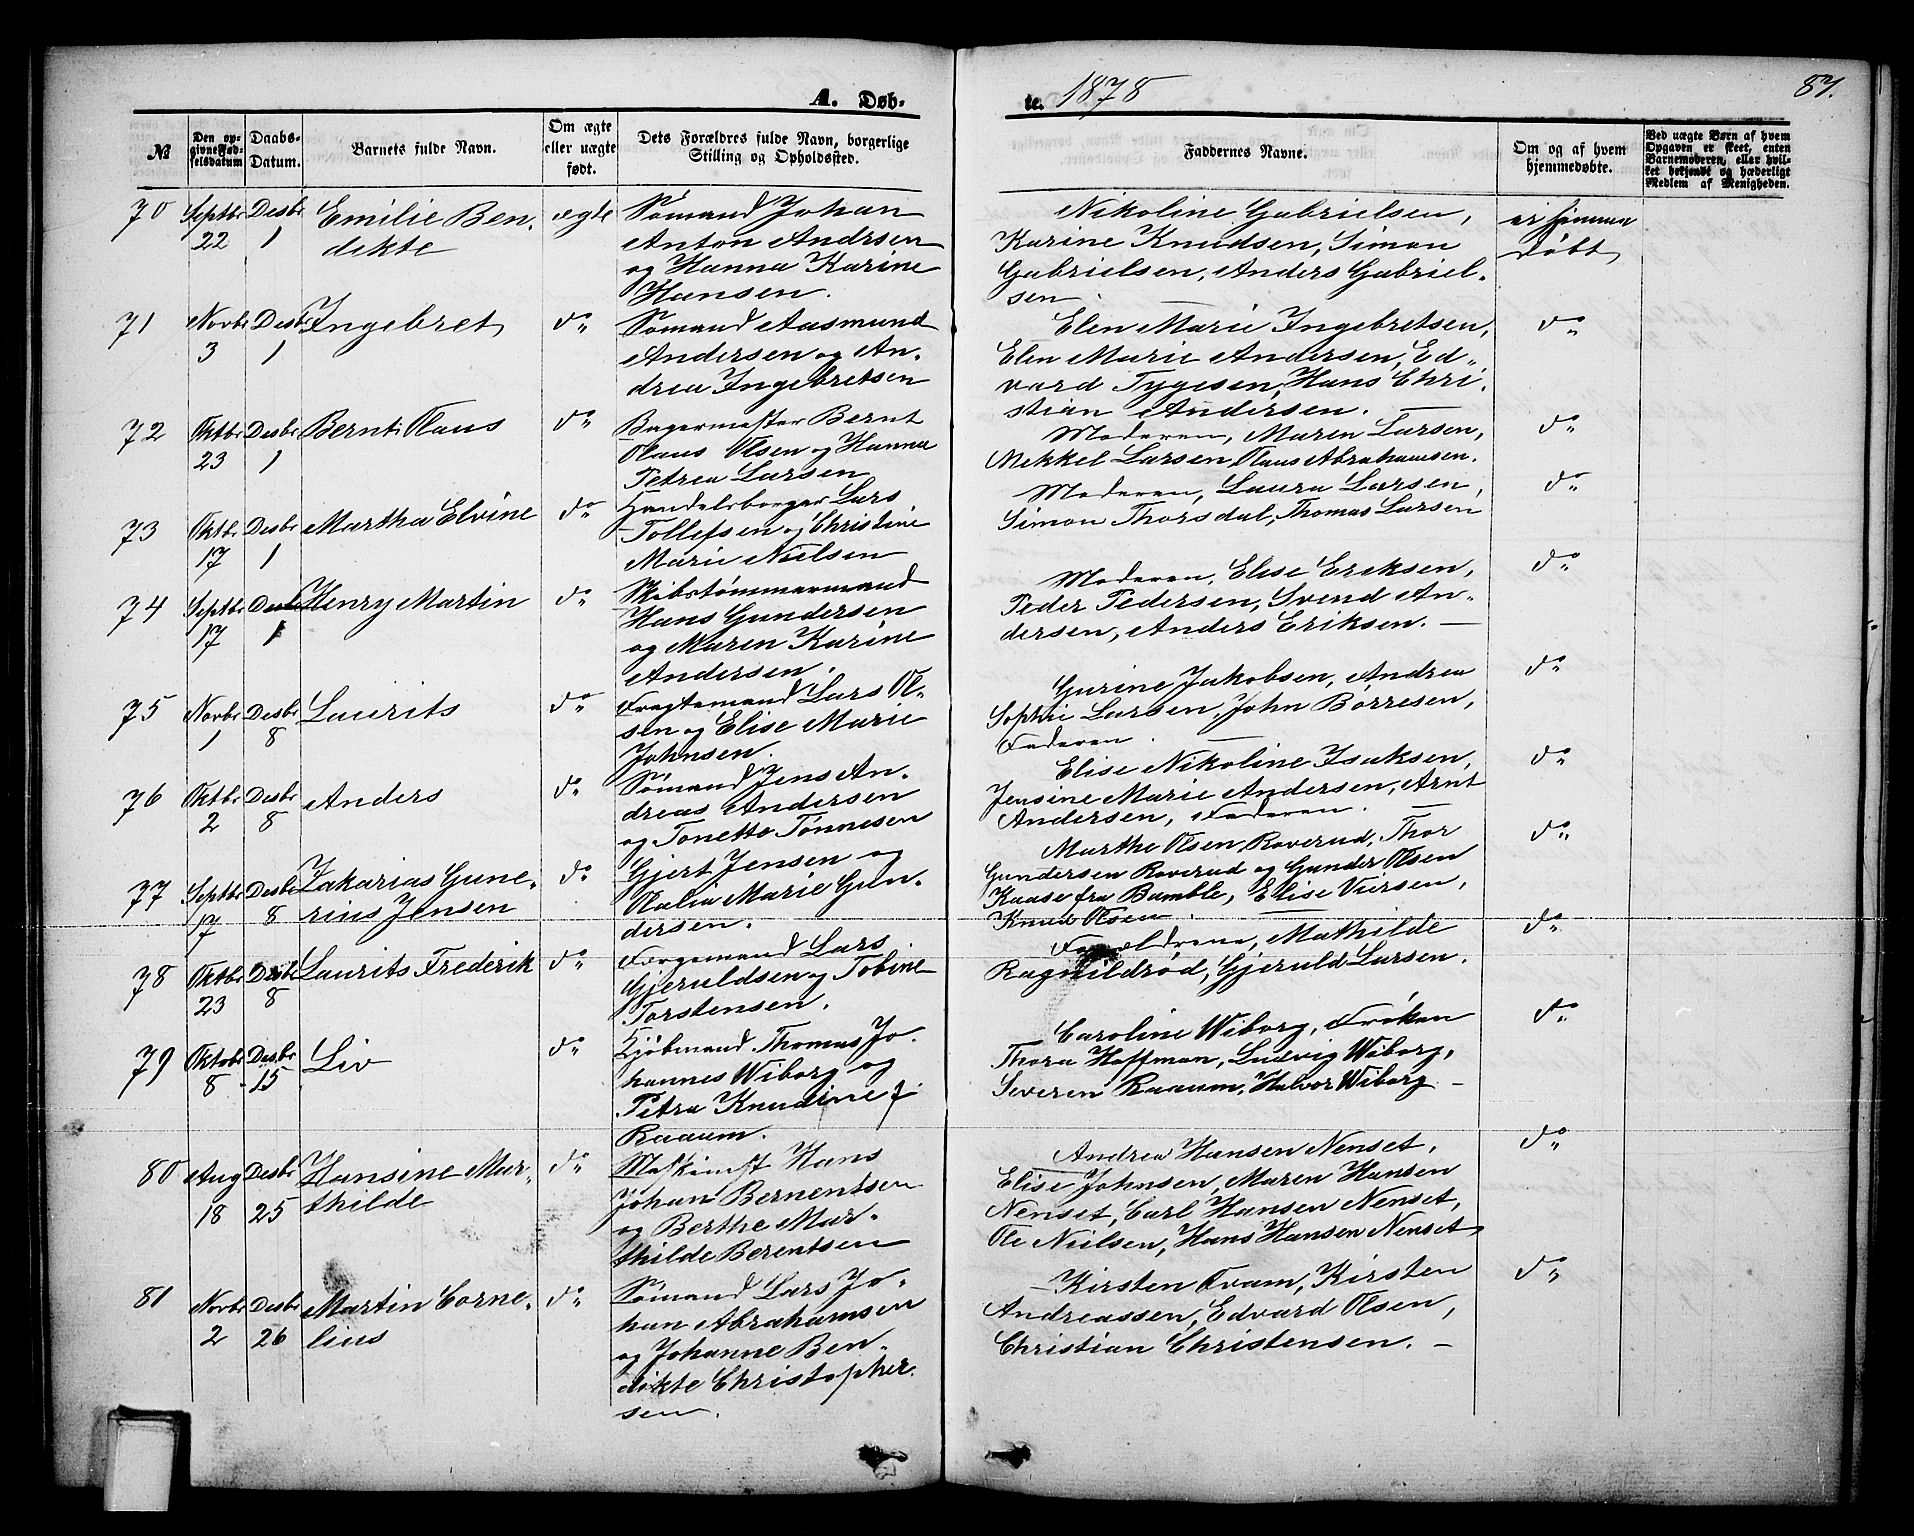 A. Døb-
te. 1878
87.
№
Den op-
givne Fød-
selsdatum
Daabs-
Datum.
Barnets fulde Navn.
Om ægte
eller uægte
født.
Dets Forældres fulde Navn, borgerlige
Stilling og Opholdssted.
Faddernes Navne.
Om og af hvem
hjemmedøbte.
Ved uægte Børn af hvem
Opgaven er skeet, enten
Barnemoderen, eller hvil-
ket bekjendt og hæderligt
Medlem af Menigheden.
70 Septbr 22 Desbr 1
Emilie Ben-
dikte
ægte
Sømand Johan
Anton Andrsen
og Hanna Karine
Hansen.
Nikoline Gabrielsen,
Karine Knudsen, Simon
Gabrielsen, Anders Gabriel-
sen.
er hjemme
døbt
71 Novbr 3 Desbr 1
Ingebret
do
Sømand Aasmund
Andersen og An-
drea Ingebretsen
Elen Marie Ingebretsen,
Elen Marie Andersen, Ed-
vard Tygesen, Hans Chri-
stian Andersen.
do
72 Oktbr 23 Desbr 1
Bernt Olaus
do
Bagermester Bernt
Olaus Olsen og Hanna
Petrea Larsen
Moderen, Maren Larsen,
Mekkel Larsen, Olaus Abrahamsen.
do
73 Oktbr 17 Desbr 1
Martha Elvine
do
Handelsborger Lars
Tollefsen og Christine
Marie Nielsen
Moderen, Laura Larsen,
Simon Thorsdal, Thomas Larsen
do
74 Septbr 17 Desbr 1
Henry Martin
do
Skibstømmermand
Hans Gundersen
og Maren Karine
Andersen.
Moderen, Elise Eriksen,
Peder Pedersen, Svend An-
dersen, Anders Eriksen.
do
75 Novbr 1 Desbr 8
Laurits
do
Fragtemand Lars Ol-
sen og Elise Marie
Johnsen.
Gurine Jakobsen, Andrea
Sophie Larsen, John Børresen,
Faderen.
do
76 Oktbr 2 Desbr 8
Anders
do
Sømand Jens An-
dreas Andersen
og Tonette Tønnesen
Elise Nikoline Isaksen,
Jensine Marie Andersen, Arnt
Andersen, Faderen.
do
77 Septbr 17 Desbr 8
Zakarias Gune-
rius Jensen
do
Gjert Jensen og
Olalia Marie Gun-
dersen.
Marthe Olsen Roverud, Thor
Gundersen Roverud og Gunder Olsen
Kaase fra Bamble, Elise
Knud Olsen.
do
78 Oktbr 23 Desbr 8
Laurits Frederik
do
Lars
Gjeruldsen og Tobine
Torstensen.
Forældrene, Mathilde
Ragnildrød, Gjeruld Larsen.
do
79 Oktobr 8 Desbr 15
Liv
do
Kjøbmand Thomas Jo-
hannes Wiborg og
Petra Knudine f.
Raaum.
Caroline Wiborg, Frøken
Thora Hoffman, Ludvig Wiborg,
Severen Raaum, Halvor Wiborg
do
80 Aug 18 Desbr 25
Hansine Mar-
thilde
do
Maskinist Hans
Johan Bernentsen
og Berthe Mar-
thilde Berentsen
Andrea Hansen Nenset,
Elise Johnsen, Maren Hansen
Nenset, Carl Hansen Nenset,
Ole Nielsen, Hans Hansen Nenset
do
81 Novbr 2 Desbr 26
Martin Corne-
lius
do
Sømand Lars Jo-
han Abrahamsen
og Johanne Ben-
dikte Christopher-
sen.
Kirsten Tvam, Kirsten
Andreassen, Edvard Olsen,
Christian Christensen.
do